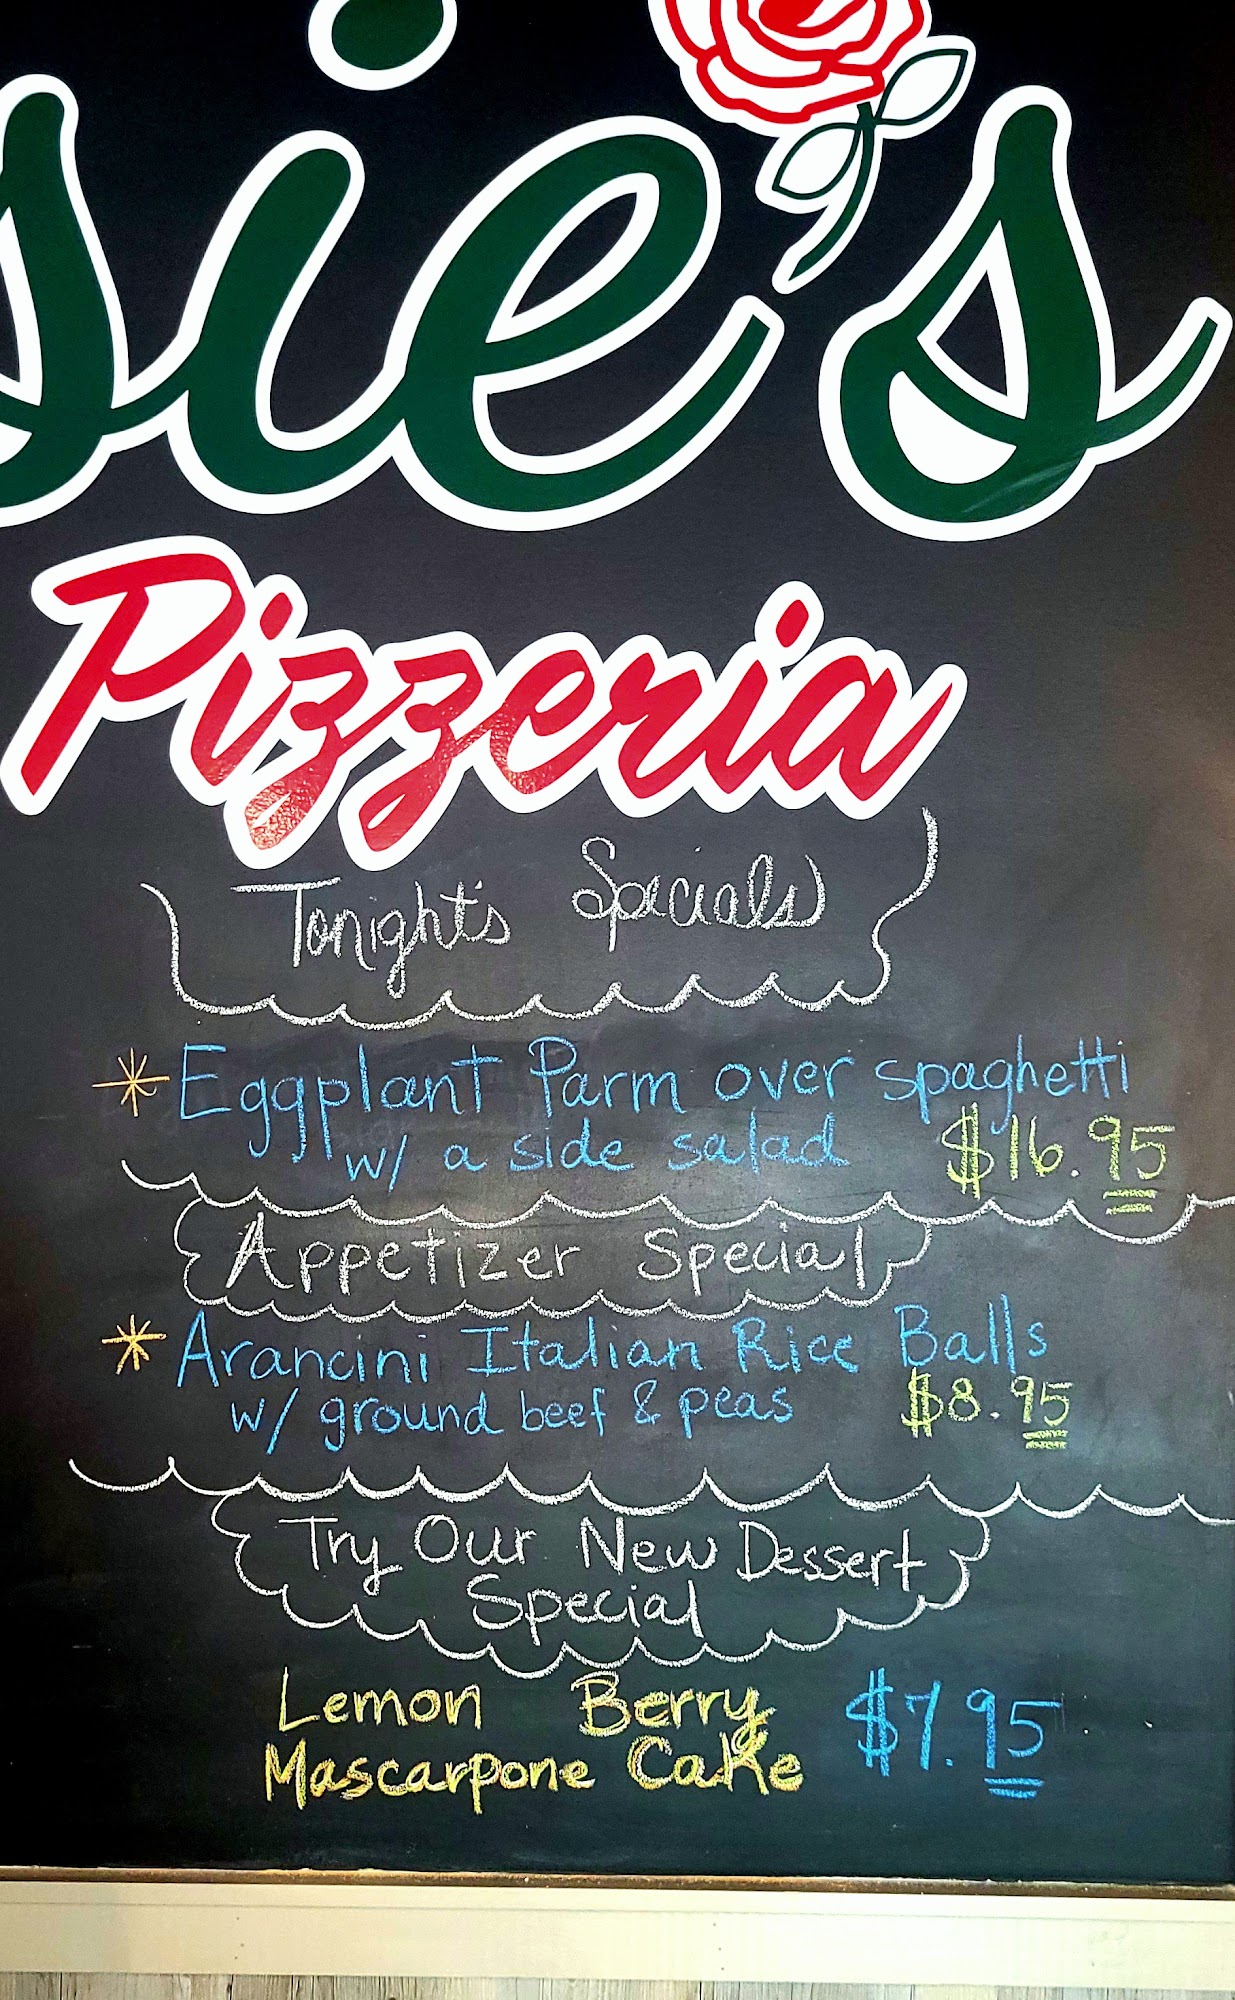 sie's
Pizzeria
Tonight's Specials
* Eggplant Parm over spaghetti
w/ a side salad $16.95
Appetizer Special
* Arancini Italian Rice Balls
w/ ground beef & peas $8.95
Try Our New Dessert
Special
Lemon Berry
Mascarpone Cake $7.95